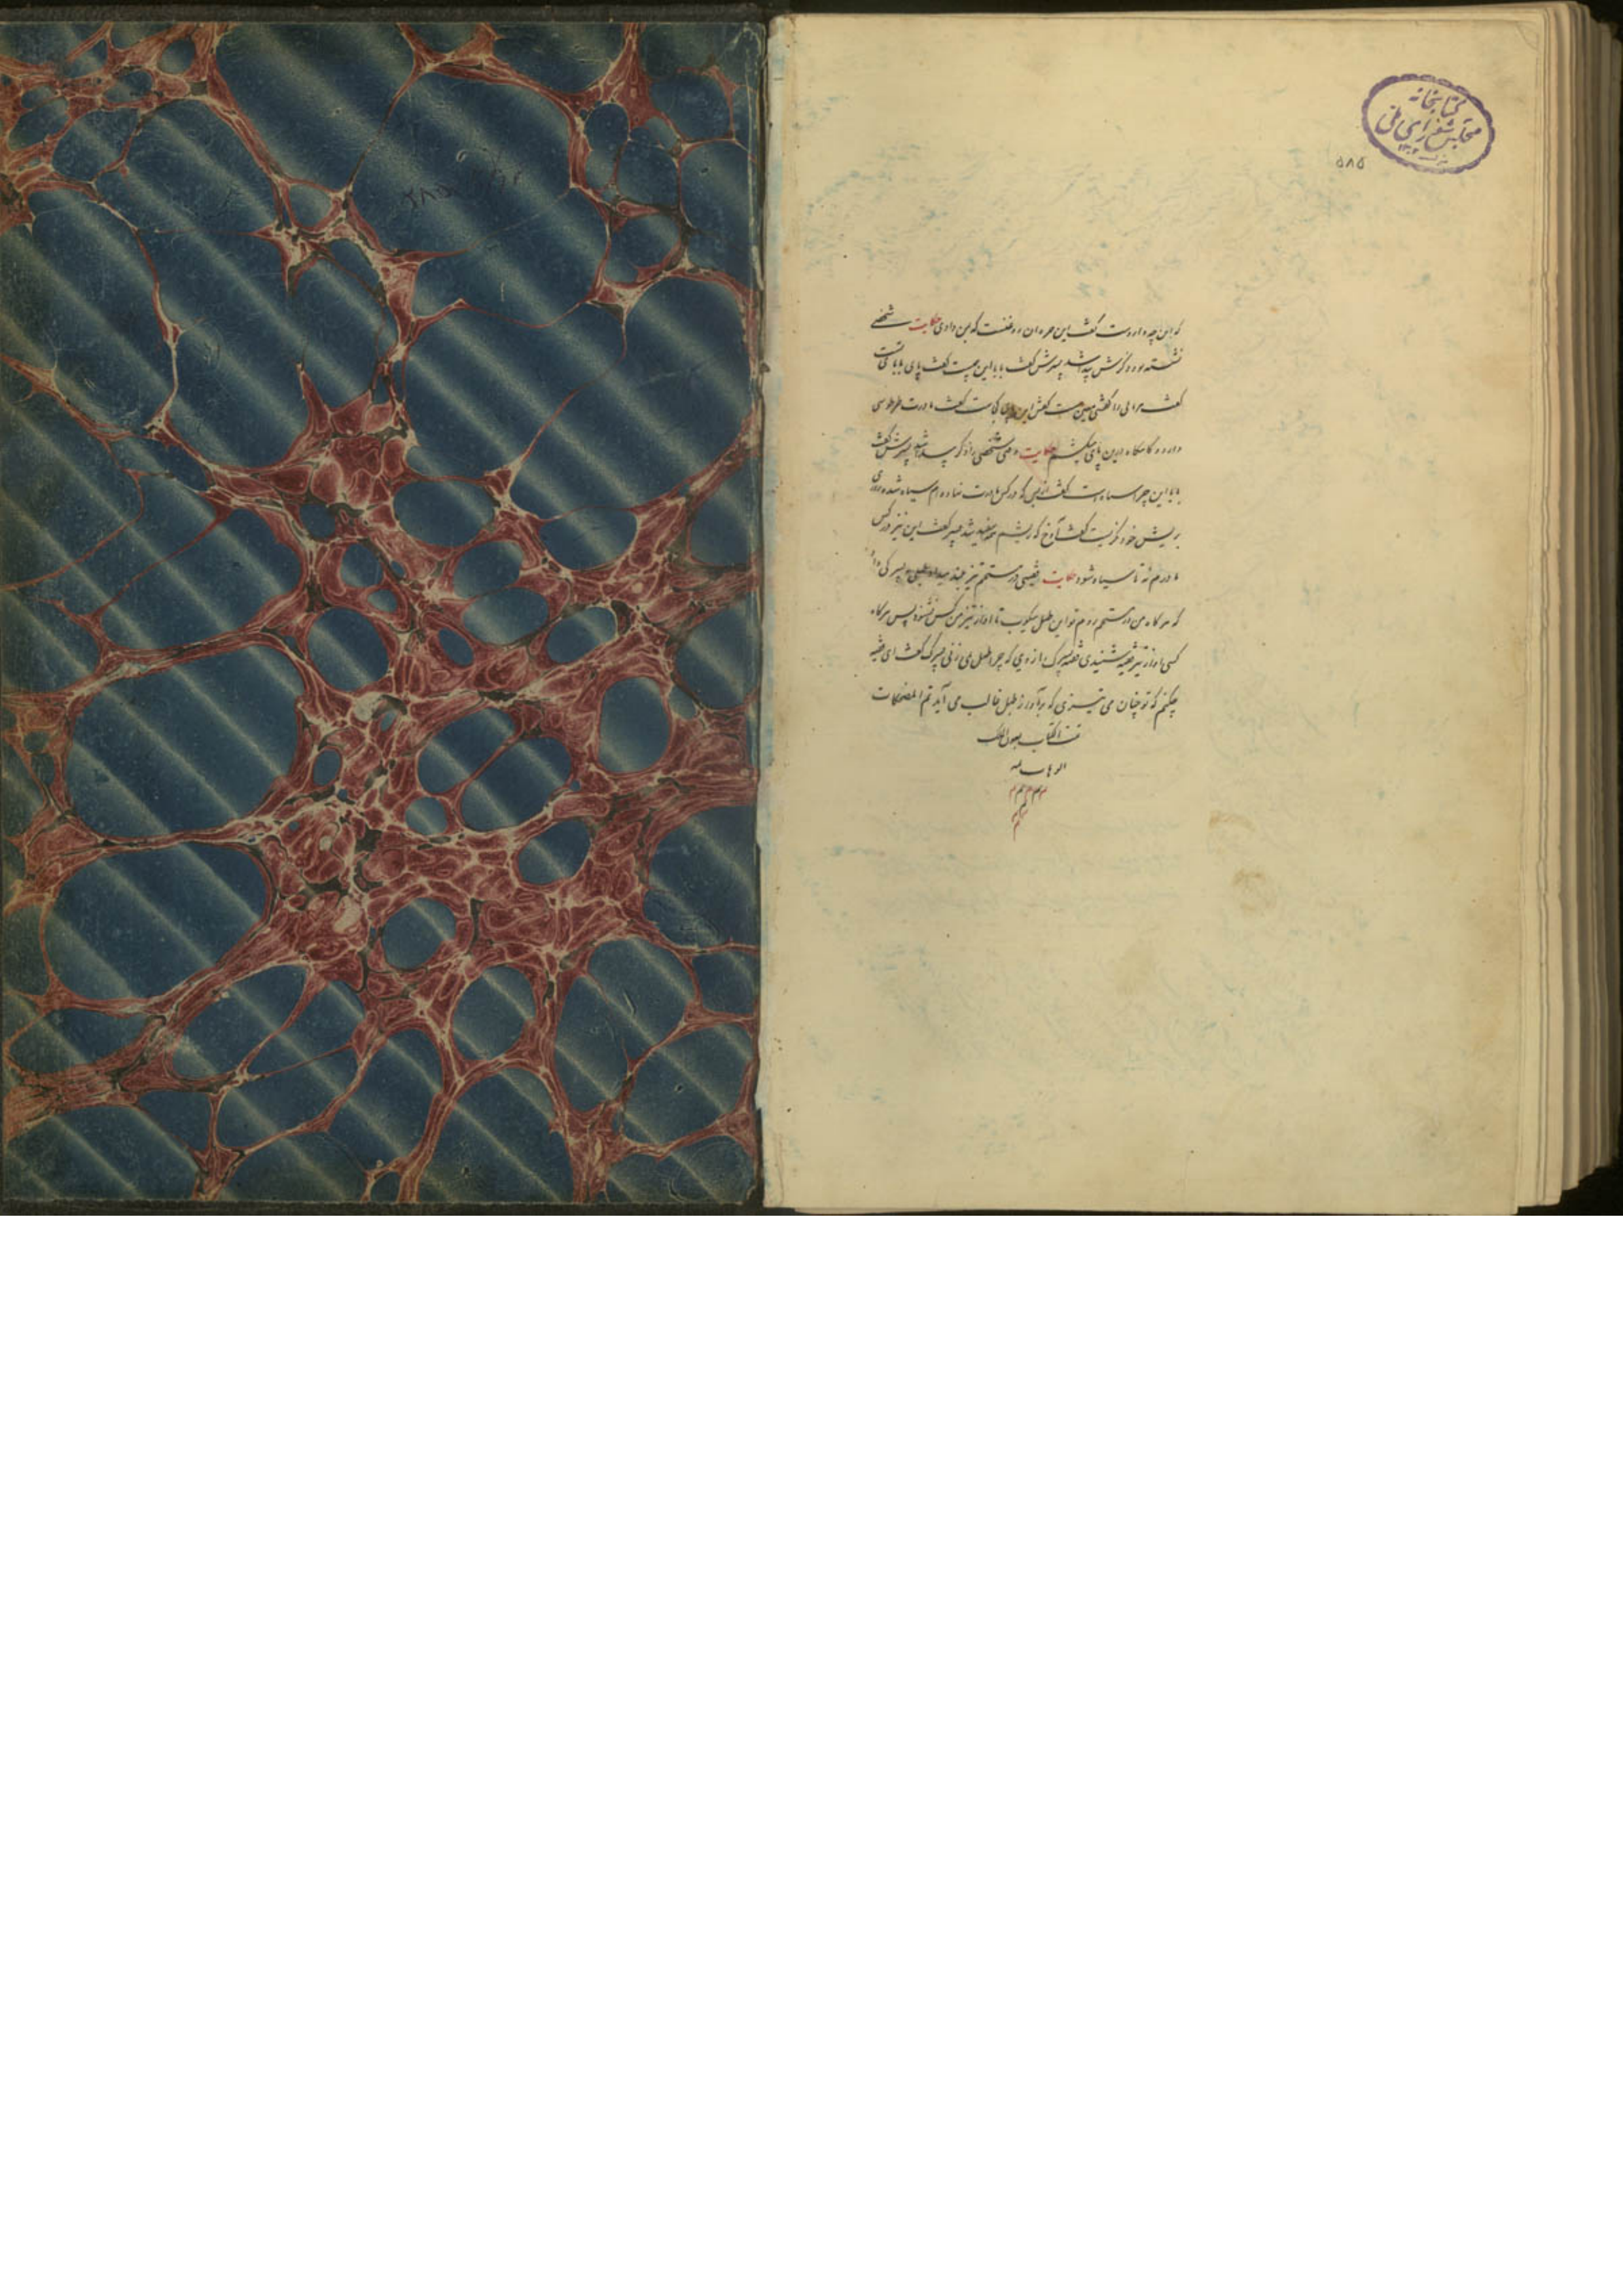 کتابخانه
مجلس شورای ملی
۵۸۵
که این چه داروست گفت این روغنست که بمن دادی حکایت شخصی
نشسته بود و کیرش پیدا شد پسرش گفت بابا این چیست گفت پای بابای تست
گفت را کفشی معین هست کفش این پای کجاست گفت مادرت
دارد این پای میکشم حکایت شخصی را کیر پیدا شد پسرش گفت
بابا این چرا سیاه است گفت از بس که در کس مادرت نهاده ام سیاه شده روزی
بریش خود نگریست گفت آوخ که ریشم همه سفید شد پسر گفت این نیز در کس
مادرم نه تا سیاه شود حکایت فقیهی در مستحم تیز بلند میداد طبلی به پسرکی داد
که هر گاه من در مستحم روم تو این طبل بکوب تا آواز تیز من کس نشنود پس هر گاه
کسی آواز تیز فقیه شنیدی پسرک را زدی که چرا طبل نمی زنی پسرک گفت ای فقیه
چکنم که تو چنان می تیزی که بر آواز طبل غالب می آید تم المضحکات
تمت الکتاب بعون الملک
الوهاب